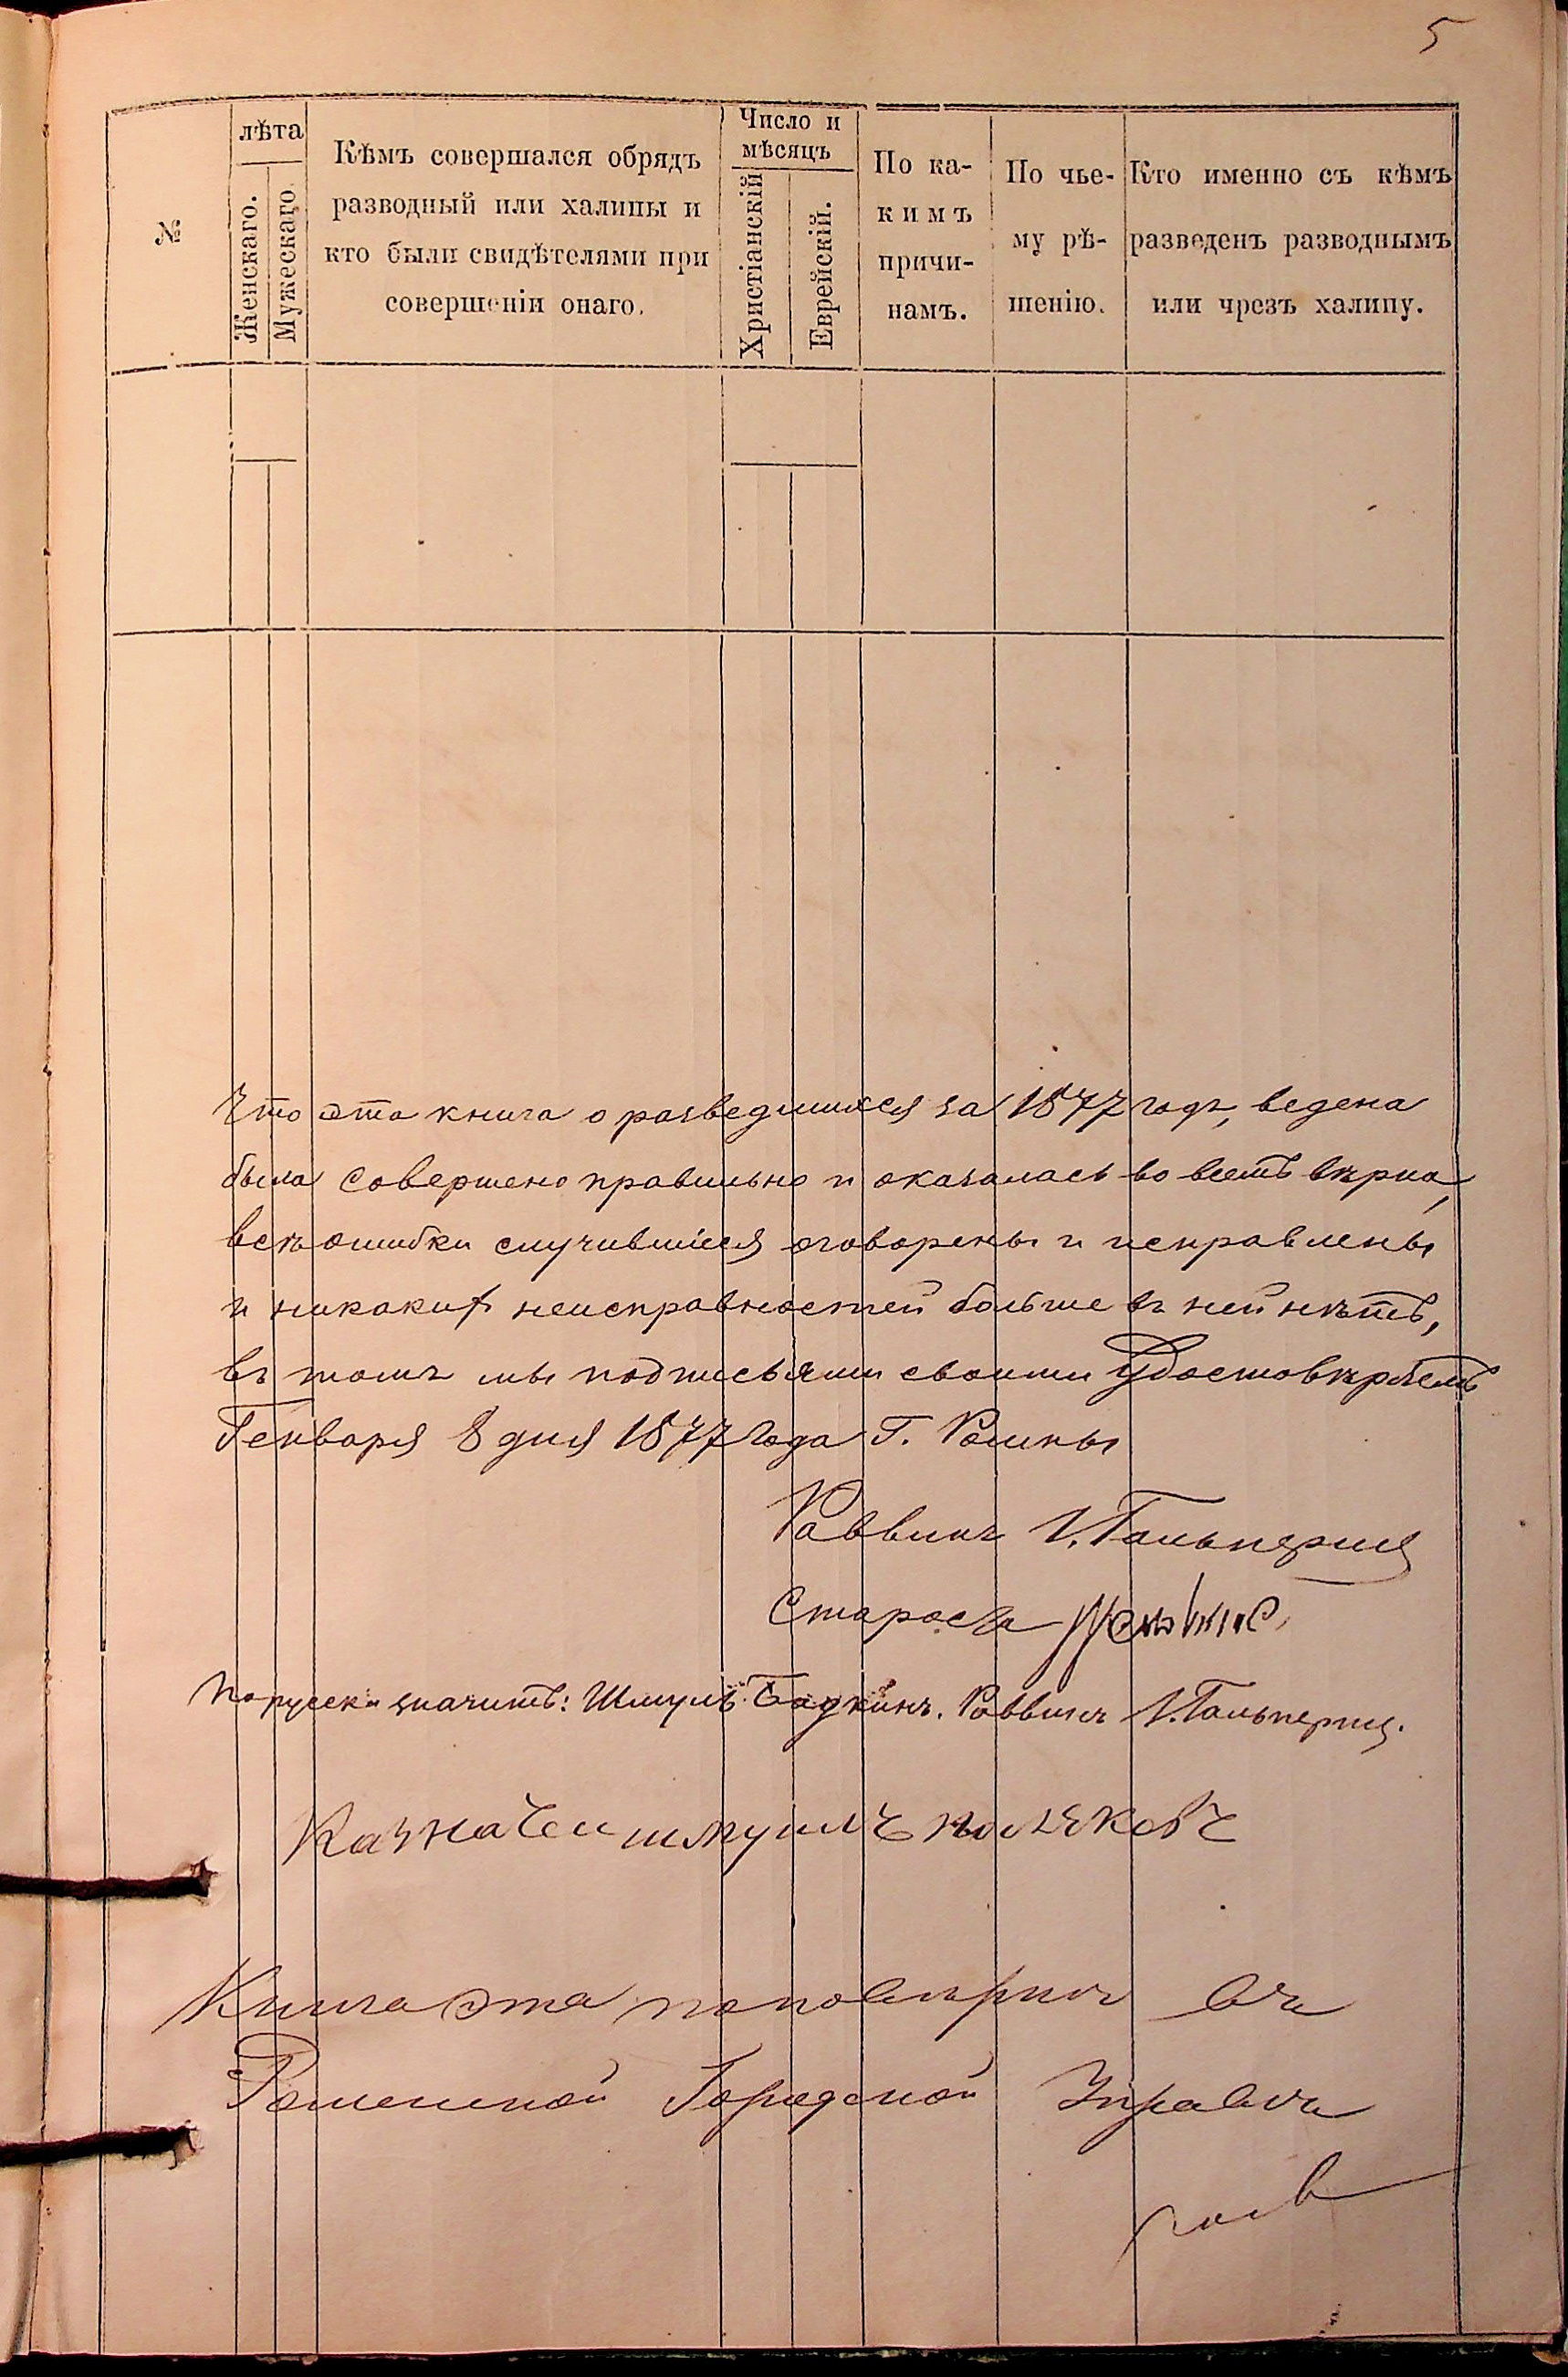 5
№
лѣта
Женскаго.
Мужескаго.
Кѣмъ совершался обрядъ
разводный или халицы и
кто были свидѣтелями при
совершеніи онаго.
Число и
мѣсяцъ
Христіанскій
Еврейскій.
По ка-
кимъ
причи-
намъ.
По чье-
му рѣ-
шенію.
Кто именно съ кѣмъ
разведенъ разводнымъ
или чрезъ халицу.
Что эта книга о разведшихся за 1877 годъ, ведена
была совершено правильно и оказалась во всемъ вѣрна,
всѣ ошибки случившіеся оговорены и исправлены
и никакихъ неисправностей больше въ ней нѣтъ,
въ томъ мы подписьями своими удостовѣряемъ
Генваря 8 дня 1877 года Г. Ромны
Раввинъ І. Гальперинъ
Староста
По русски значитъ: Шмуль Бадкинъ. Раввинъ І. Гальперинъ.
Казначеи шмуилъ поляковъ
Книга эта повѣрена въ
Роменской Городской Управѣ